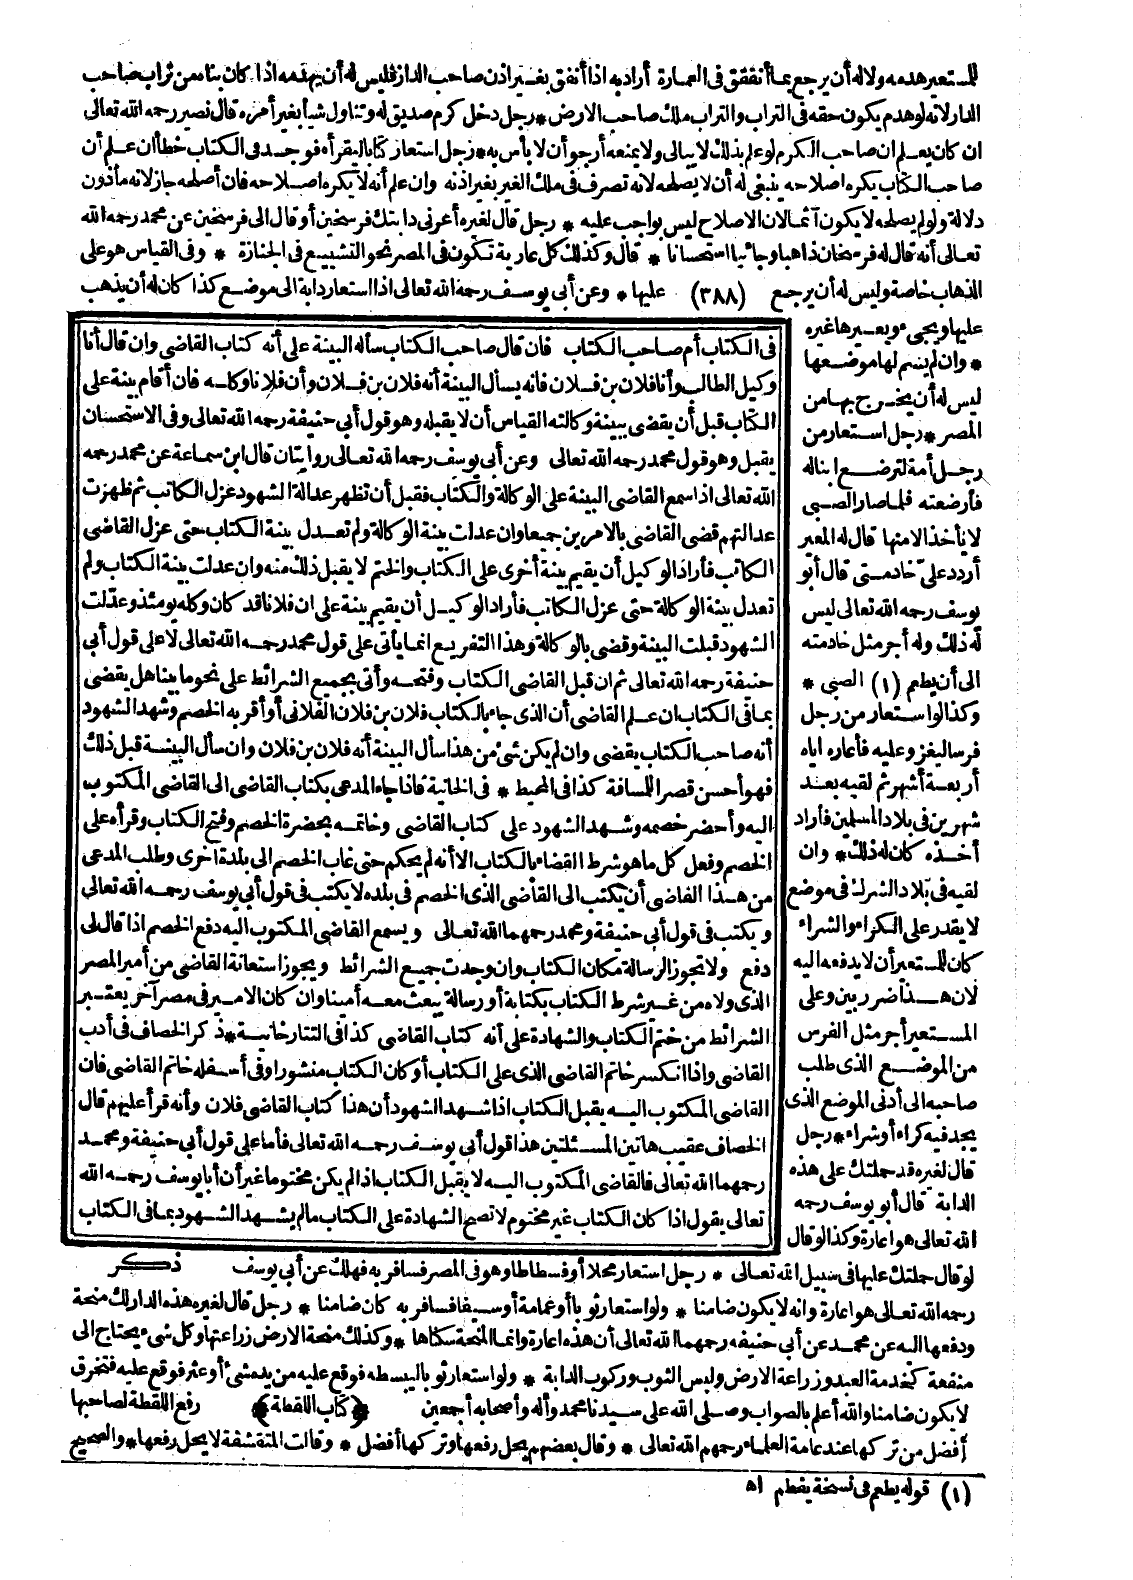 للمستعير هدمه ولا له أن يرجع بما أنفقق في العمارة أراد به اذا أنفق بغير اذن صاحب الدار فليس له أن يهدمه اذا كان بناه من تراب صاحب
الدار لانه لو هدم يكون حقه في التراب والتراب ملك صاحب الارض * رجل دخل كرم صديق له وتناول شيأ بغير أمره قال نصير رحمه الله تعالى
ان كان يعلم ان صاحب الكرم لو علم بذلك لا يبالي ولا يمنعه أرجو أن لا بأس به * رجل استعار كتابا ليقرأه فوجد في الكتاب خطأ ان علم أن
صاحب الكتاب يكره اصلاحه ينبغي له أن لا يصلحه لانه تصرف في ملك الغير بغير اذنه وان علم أنه لا يكره اصلاحه فان أصلحه جاز لانه مأذون
دلالة ولو لم يصلحه لا يكون آثما لان الاصلاح ليس بواجب عليه * رجل قال لغيره أعرني دابتك فرسخين أو قال الى فرسخين عن محمد رحمه الله
تعالى أنه قال له فرسخان ذاهبا وجائيا استحسانا * قال وكذلك كل عارية تكون في المصر نحو التشييع في الجنازة * وفي القياس هو على
الذهاب خاصة وليس له أن يرجع (٣٨٨) عليها * وعن أبي يوسف رحمه الله تعالى اذا استعار دابة الى موضع كذا كان له أن يذهب
عليها ويجيء ويعيرها غيره
* وان لم يسم لها موضعها
ليس له أن يخرج بها من
المصر * رجل استعار من
رجل أمة لترضع ابنا له
فأرضعته فلما صار الصبي
لا يأخذ الا منها قال له المعير
أردد عليّ خادمتي قال أبو
يوسف رحمه الله تعالى ليس
له ذلك وله أجر مثل خادمته
الى أن يطعم (١) الصبي *
وكذا لو استعار من رجل
فرسا ليغزو عليه فأعاره اياه
أربعة أشهر ثم لقيه بعد
شهرين في بلاد المسلمين فأراد
أخذه كان له ذلك * وان
لقيه في بلاد الشرك في موضع
لا يقدر على الكراء والشراء
كان للمستعير أن لا يدفعه اليه
لان هذا ضرر بين وعلى
المستعير أجر مثل الفرس
من الموضع الذي طلب
صاحبه الى أدنى الموضع الذي
يجد فيه كراء أو شراء * رجل
قال لغيره قد حملتك على هذه
الدابة قال أبو يوسف رحمه
الله تعالى هو اعارة وكذا لو قال
في الكتاب أم صاحب الكتاب فان قال صاحب الكتاب سأله البينة على أنه كتاب القاضي وان قال أنا
وكيل الطالب وأنا فلان بن فلان فانه يسأل البينة أنه فلان بن فلان وأن فلانا وكله فان أقام بينة على
الكتاب قبل أن يقضي ببينة وكالته القياس أن لا يقبله وهو قول أبي حنيفة رحمه الله تعالى وفي الاستحسان
يقبل وهو قول محمد رحمه الله تعالى وعن أبي يوسف رحمه الله تعالى روايتان قال ابن سماعة عن محمد رحمه
الله تعالى اذا سمع القاضي البينة على الوكالة والكتاب فقبل أن تظهر عدالة الشهود عزل الكاتب ثم ظهرت
عدالتهم قضى القاضي بالامرين جميعا وان عدلت بينة الوكالة ولم تعدل بينة الكتاب حتى عزل القاضي
الكاتب فأراد الوكيل أن يقيم بينة أخرى على الكتاب والختم لا يقبل ذلك منه وان عدلت بينة الكتاب ولم
تعدل بينة الوكالة حتى عزل الكاتب فأراد الوكيل أن يقيم بينة على ان فلانا قد كان وكله يومئذ وعدّلت
الشهود قبلت البينة وقضى بالوكالة وهذا التفريع انما يأتي على قول محمد رحمه الله تعالى لا على قول أبي
حنيفة رحمه الله تعالى ثم ان قبل القاضي الكتاب وفتحه وأتى بجميع الشرائط على نحو ما بينا هل يقضي
بما في الكتاب ان علم القاضي أن الذي جاء بالكتاب فلان بن فلان الفلاني أو أقر به الخصم وشهد الشهود
أنه صاحب الكتاب يقضي وان لم يكن شئ من هذا سأل البينة أنه فلان بن فلان وان سأل البينة قبل ذلك
فهو أحسن قصرا للمسافة كذا في المحيط * في الخانية فاذا جاء المدعي بكتاب القاضي الى القاضي المكتوب
اليه وأحضر خصمه وشهد الشهود على كتاب القاضي وخاتمه بحضرة الخصم وفتح الكتاب وقرأه على
الخصم وفعل كل ما هو شرط القضاء بالكتاب الا أنه لم يحكم حتى غاب الخصم الى بلدة اخرى وطلب المدعي
من هذا القاضي أن يكتب الى القاضي الذي الخصم في بلده لا يكتب في قول أبي يوسف رحمه الله تعالى
ويكتب في قول أبي حنيفة ومحمد رحمهما الله تعالى ويسمع القاضي المكتوب اليه دفع الخصم اذا قال لي
دفع ولا تجوز الرسالة مكان الكتاب وان وجدت جميع الشرائط ويجوز استعانة القاضي من أمير المصر
الذي ولاه من غير شرط الكتاب بكتابة أو رسالة يبعث معه أمينا وان كان الامير في مصر آخر يعتبر
الشرائط من ختم الكتاب والشهادة على أنه كتاب القاضي كذا في التتارخانية * ذكر الخصاف في أدب
القاضي واذا انكسر خاتم القاضي الذي على الكتاب أو كان الكتاب منشورا وفي أسفله خاتم القاضي فان
القاضي المكتوب اليه يقبل الكتاب اذا شهد الشهود أن هذا كتاب القاضي فلان وأنه قرأ عليهم قال
الخصاف عقيب هاتين المسئلتين هذا قول أبي يوسف رحمه الله تعالى فأما على قول أبي حنيفة ومحمد
رحمهما الله تعالى فالقاضي المكتوب اليه لا يقبل الكتاب اذا لم يكن مختوما غير أن أبا يوسف رحمه الله
تعالى يقول اذا كان الكتاب غير مختوم لا تصح الشهادة على الكتاب ما لم يشهد الشهود بما في الكتاب
ذكر
لو قال حملتك عليها في سبيل الله تعالى * رجل استعار محملا أو فسطاطا وهو في المصر فسافر به فهلك عن أبي يوسف
رحمه الله تعالى هو اعارة وانه لا يكون ضامنا * ولو استعار ثوبا أو عمامة أو سيفا فسافر به كان ضامنا * رجل قال لغيره هذه الدار لك منحة
ودفعها اليه عن محمد عن أبي حنيفه رحمهما الله تعالى أن هذه اعارة وانما المنحة سكناها * وكذلك منحة الارض زراعتها وكل شيء يحتاج الى
منفعة كخدمة العبد وزراعة الارض ولبس الثوب وركوب الدابة * ولو استعار ثوبا ليبسطه فوقع عليه من يده شئ أو عثر فوقع عليه فتخرق
لا يكون ضامنا والله أعلم بالصواب وصلى الله على سيدنا محمد وآله وأصحابه أجمعين ﴿كتاب اللقطة﴾ رفع اللقطة لصاحبها
أفضل من تركها عند عامة العلماء رحمهم الله تعالى * وقال بعضهم يحل رفعها وتركها أفضل * وقالت المتقشفة لا يحل رفعها * والصحيح
(١) قوله يطعم في نسخة يفطم اه